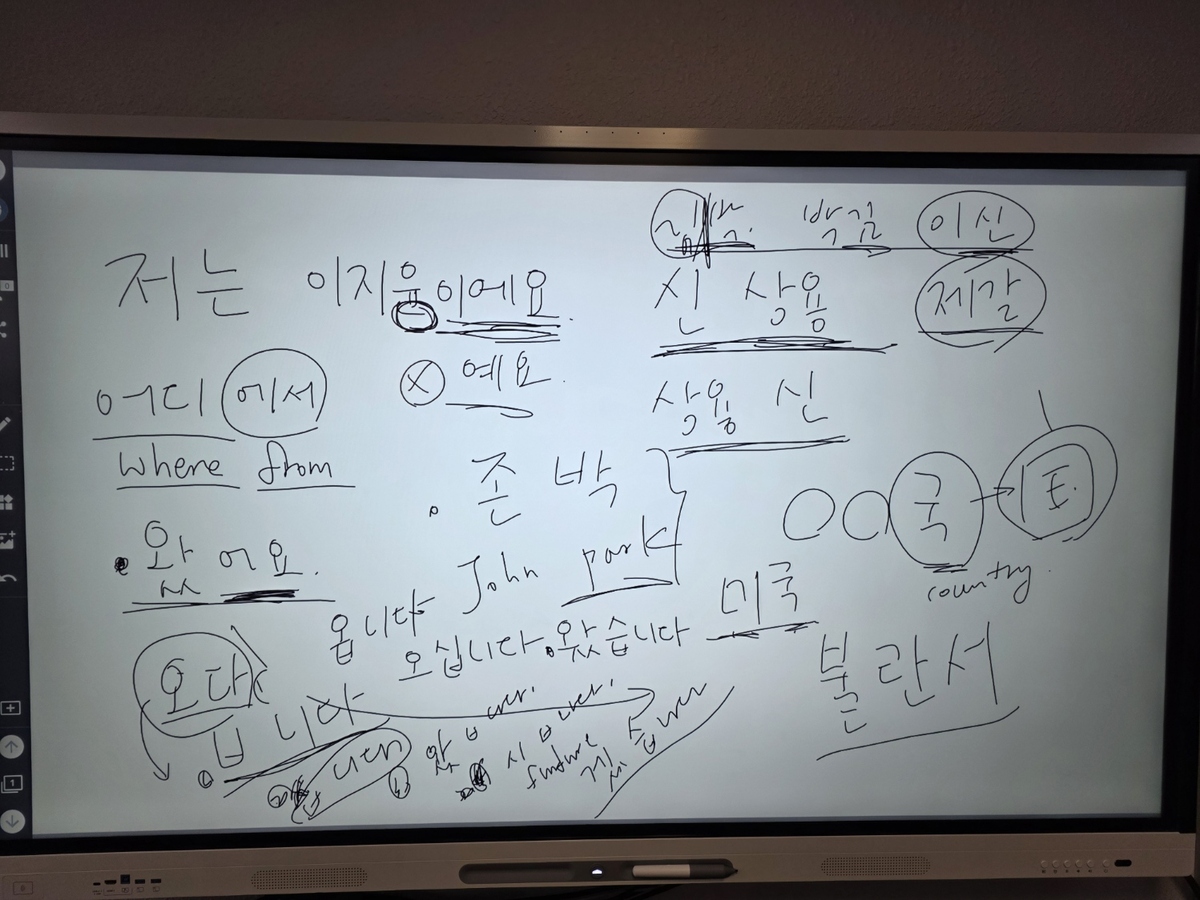 저는 이지윤이에요
박김 이신
신 상용 제갈
어디에서 ⓧ 예요.
상용 신
where from
· 존 박
○○국 → 토
· 왔어요.
John park
country.
미국
옵니다 오십니다. 왔습니다
불란서
오다
ㅂ니다
니다
시
future